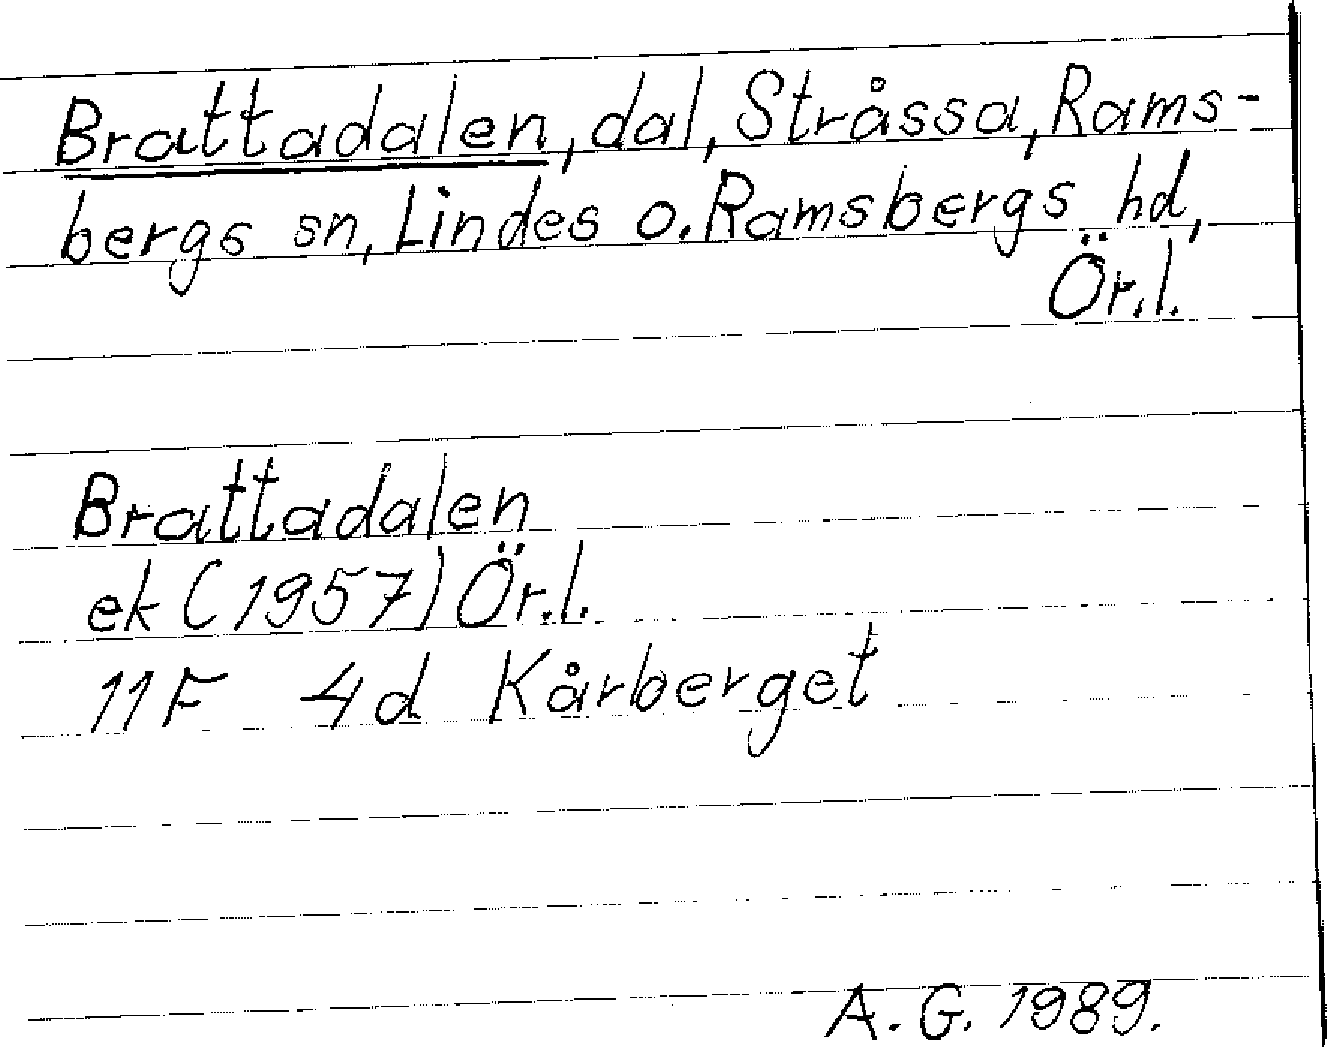 Brattadalen, dal, Stråssa, Rams-
bergs sn, Lindes o. Ramsbergs hd,
Ör.l.
Brattadalen
ek (1957) Ör.l.
11F 4d Kårberget
A. G. 1989.